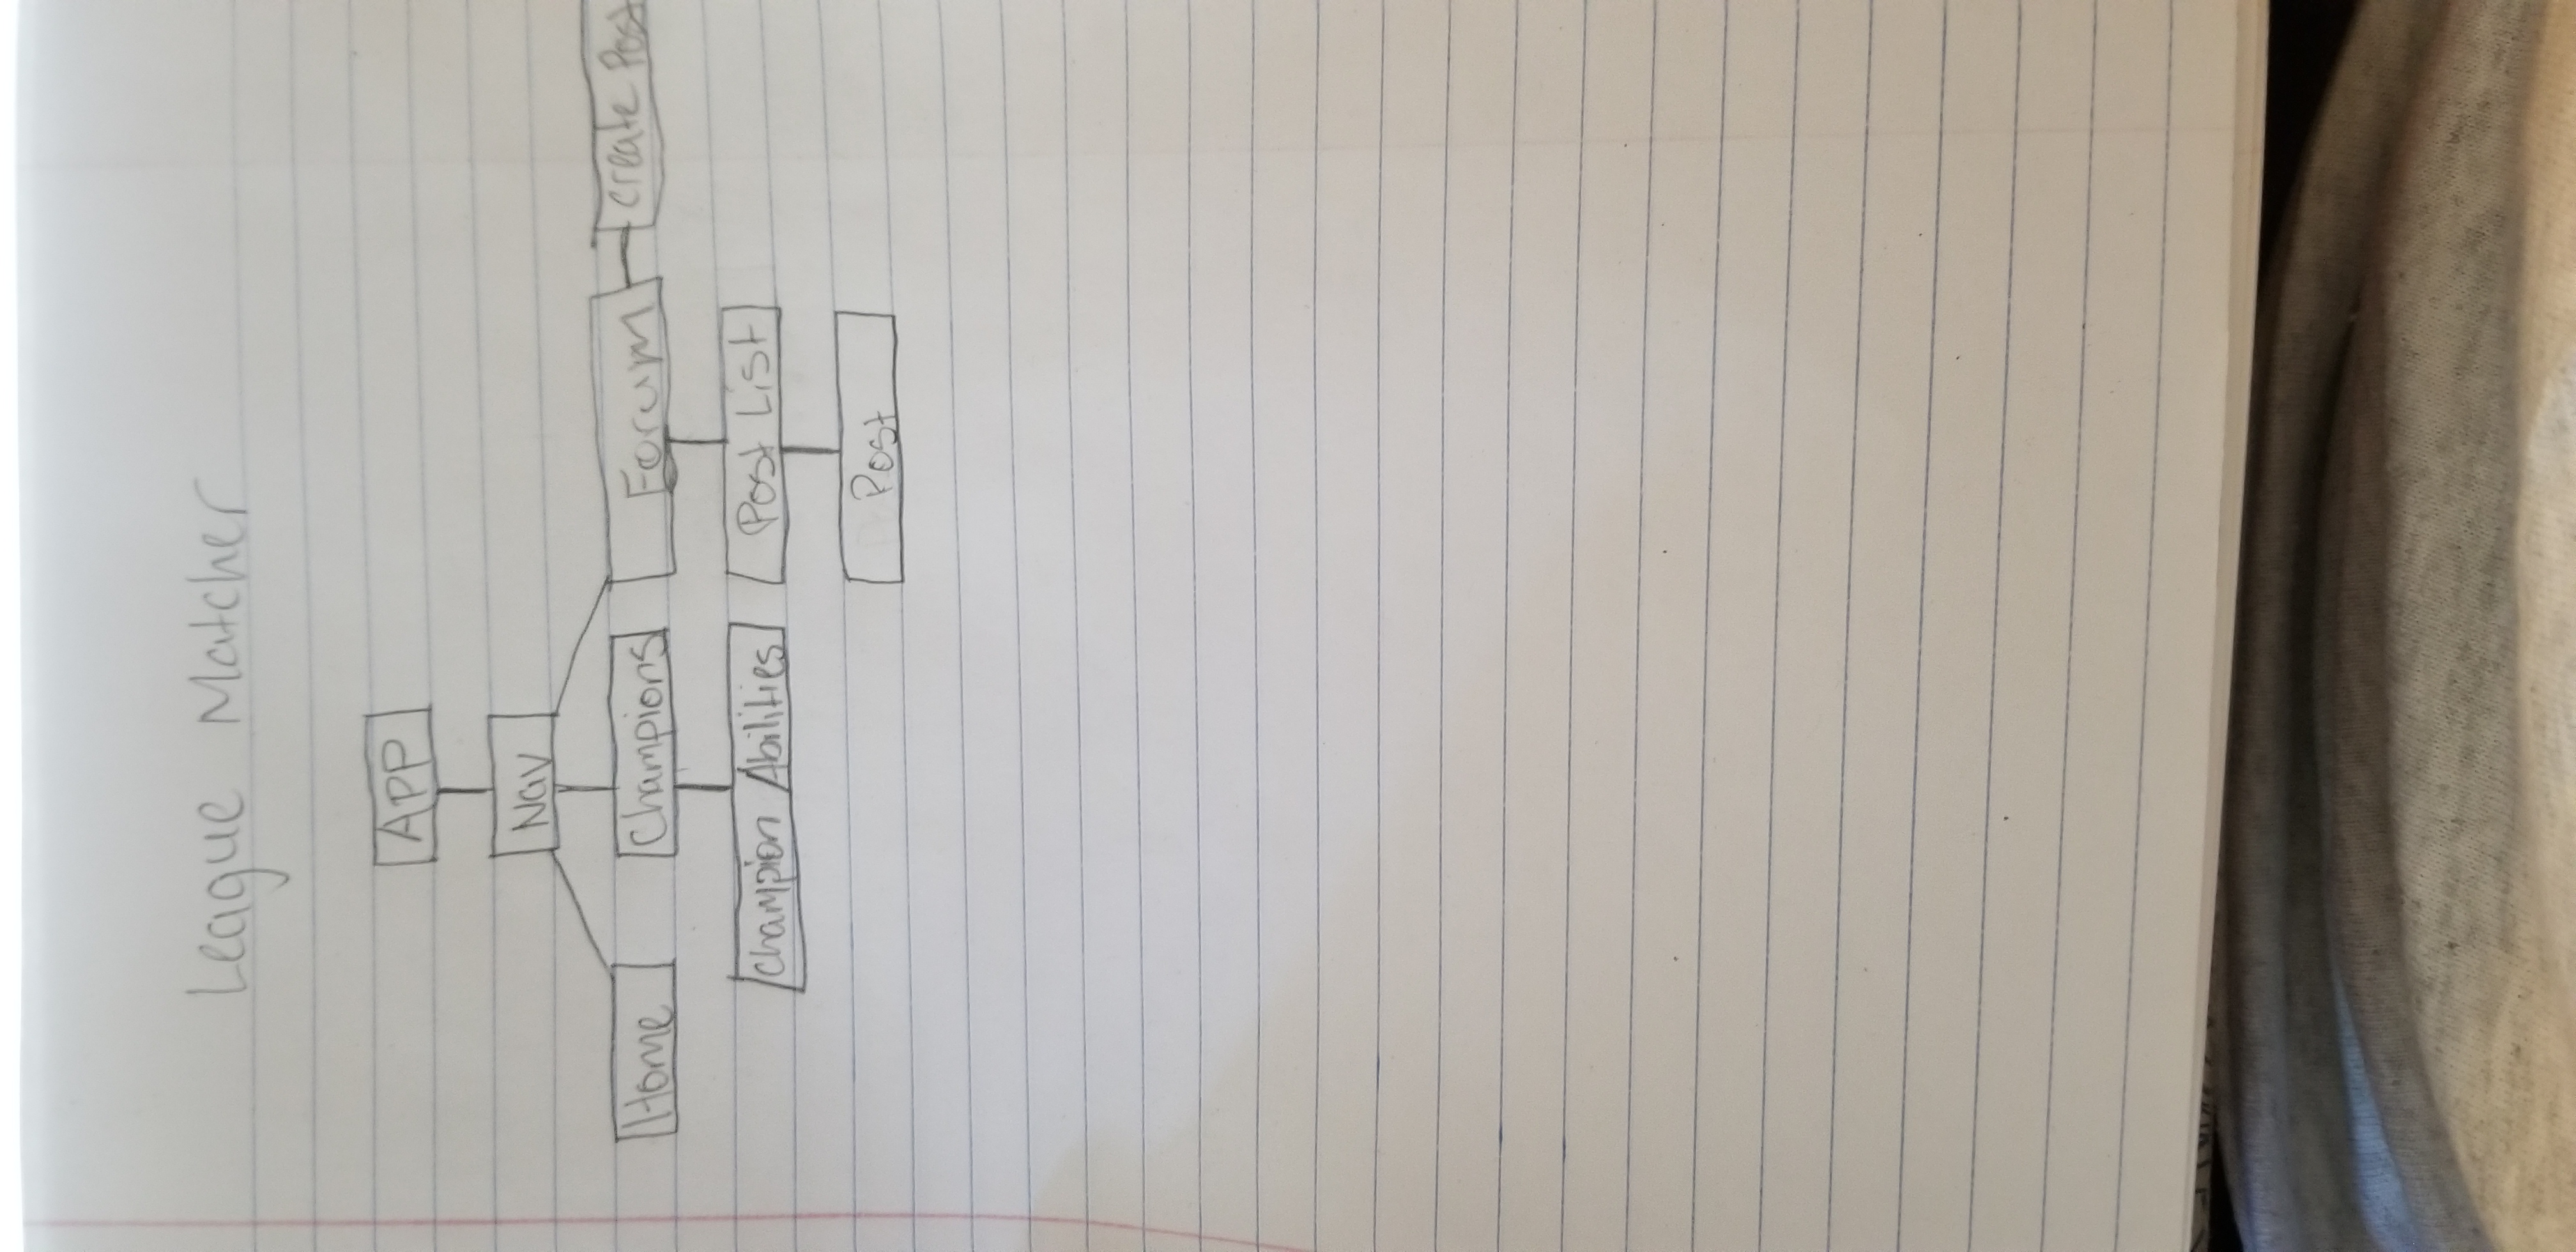 League Matcher
APP
Nav
Home
Champions
Forum
Create Post
Champion Abilities
Post List
Post